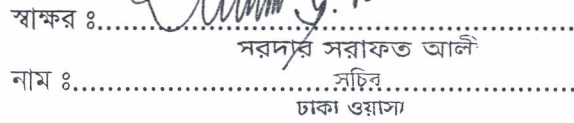 স্বাক্ষর ঃ
সরদার সরাফত আলী
নাম ঃ
সচিব
ঢাকা ওয়াসা